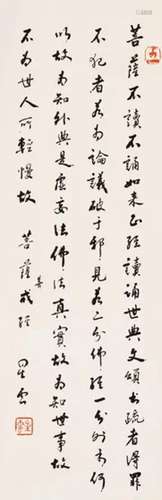 菩薩不讀不誦如來正經讀誦世典文頌書疏者得罪
不犯者若為論議破于邪見若二分佛經一分外書何
以故為知外典是虛妄法佛法真實故為知世事故
不為世人所輕慢故 菩薩善戒經 星雲